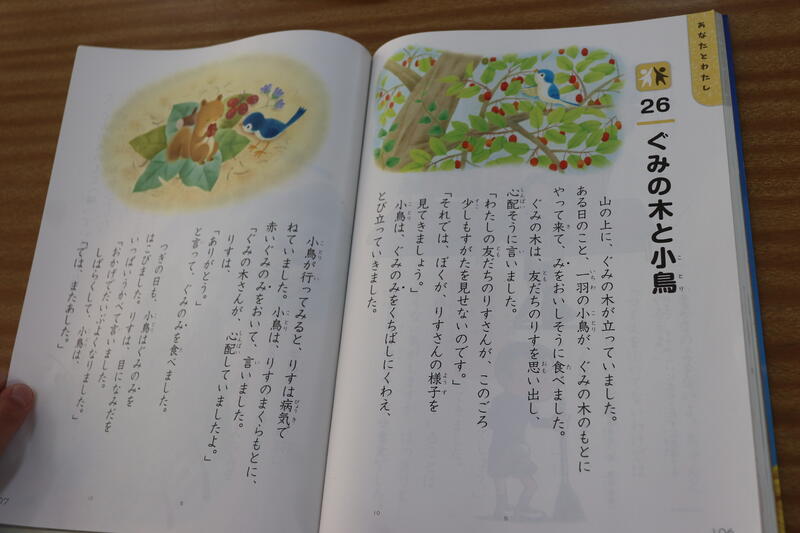 あなたとわたし
26
ぐみの木と小鳥
山の上に、ぐみの木が立っていました。
ある日のこと、一羽の小鳥が、ぐみの木のもとに
やって来て、みをおいしそうに食べました。
ぐみの木は、友だちのりすを思い出し、
心配そうに言いました。
「わたしの友だちのりすさんが、このごろ
少しもすがたを見せないのです。」
「それでは、ぼくが、りすさんの様子を
見てきましょう。」
小鳥は、ぐみのみをくちばしにくわえ、
とび立っていきました。
小鳥が行ってみると、りすは病気で
ねていました。小鳥は、りすのまくらもとに、
赤いぐみのみをおいて、言いました。
「ぐみの木さんが、心配していましたよ。」
りすは、
「ありがとう。」
と言って、ぐみのみを食べました。
つぎの日も、小鳥はぐみのみを
はこびました。りすは、目になみだを
いっぱいうかべて言いました。
「おかげでだいぶよくなりました。」
しばらくして、小鳥は、
「では、またあした。」